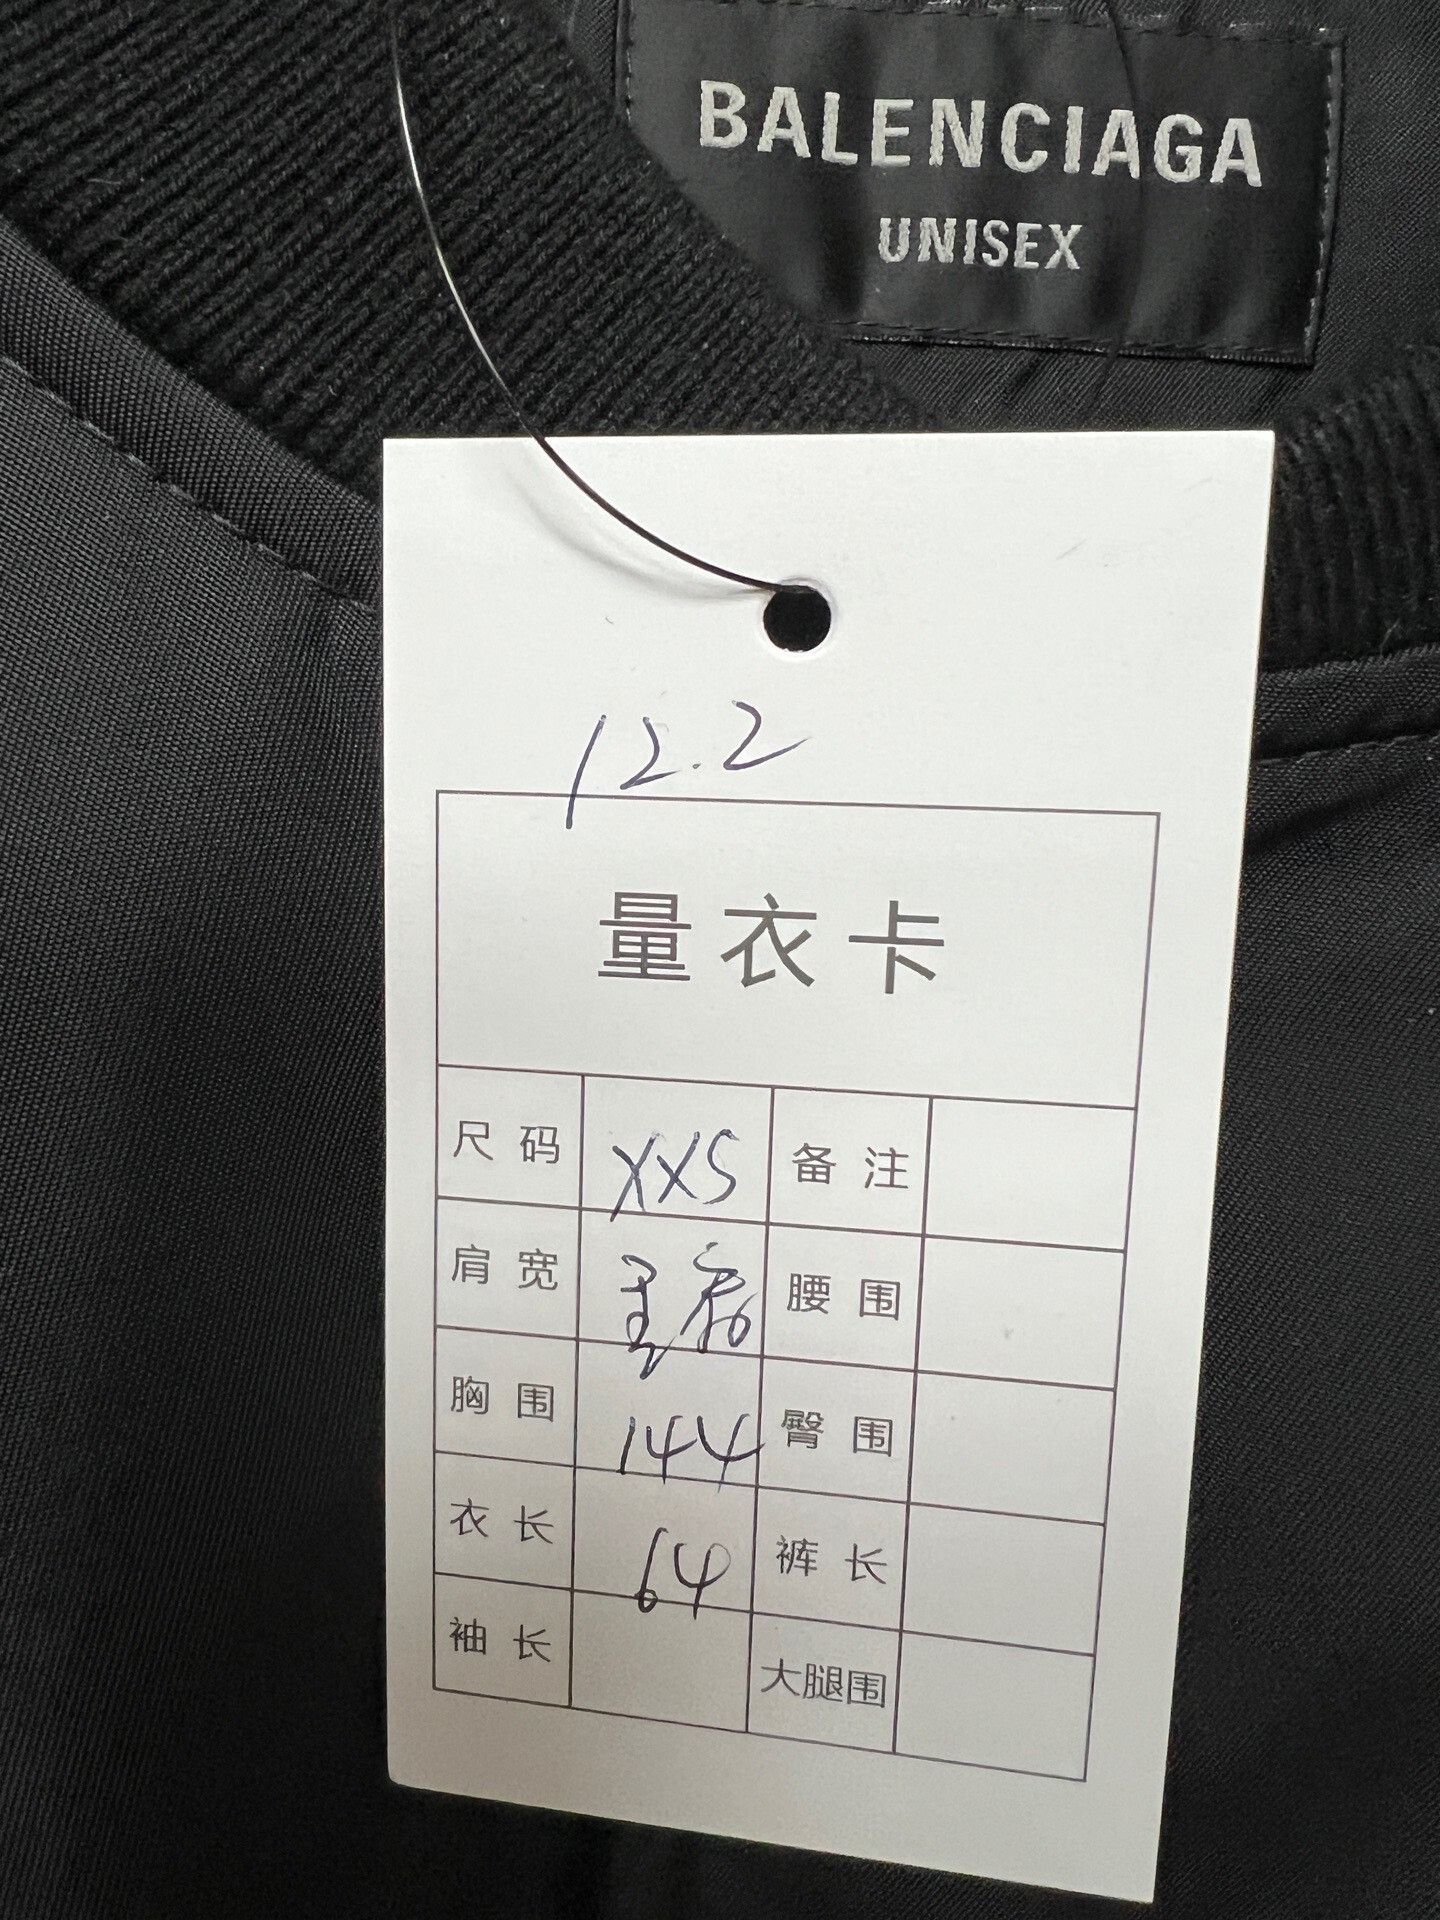 BALENCIAGA
UNISEX
12.2
量衣卡
尺码 XXS 备注
肩宽 腰围
胸围 144 臀围
衣长 64 裤长
袖长 大腿围